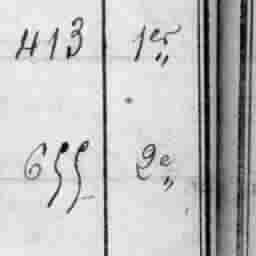 413 1er„
655 2e„